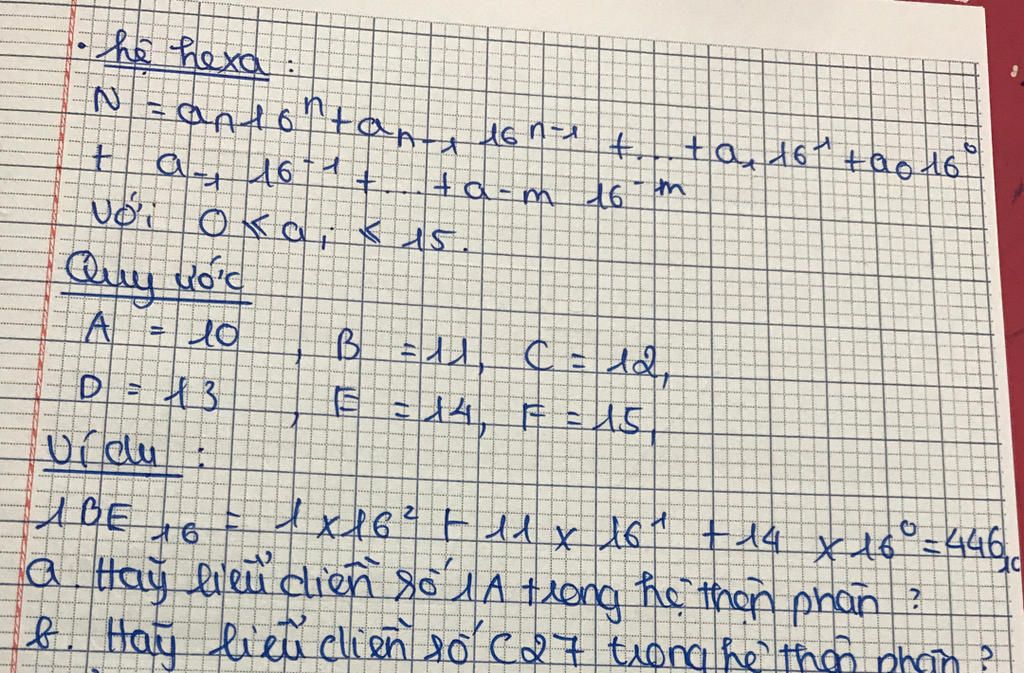 . hệ hexa :
N = aₙ16ⁿ + aₙ₋₁ 16ⁿ⁻¹ + ... + a₁ 16¹ + a₀ 16⁰
+ a₋₁ 16⁻¹ + ... + a₋ₘ 16⁻ᵐ
với 0 ≤ aᵢ ≤ 15.
Quy ước
A = 10 , B = 11, C = 12,
D = 13 , E = 14, F = 15,
Ví dụ :
1BE₁₆ = 1 x 16² + 11 x 16¹ + 14 x 16⁰ = 446₁₀
a. Hãy biểu diễn số 1A trong hệ thập phân ?
b. Hãy biểu diễn số C27 trong hệ thập phân ?